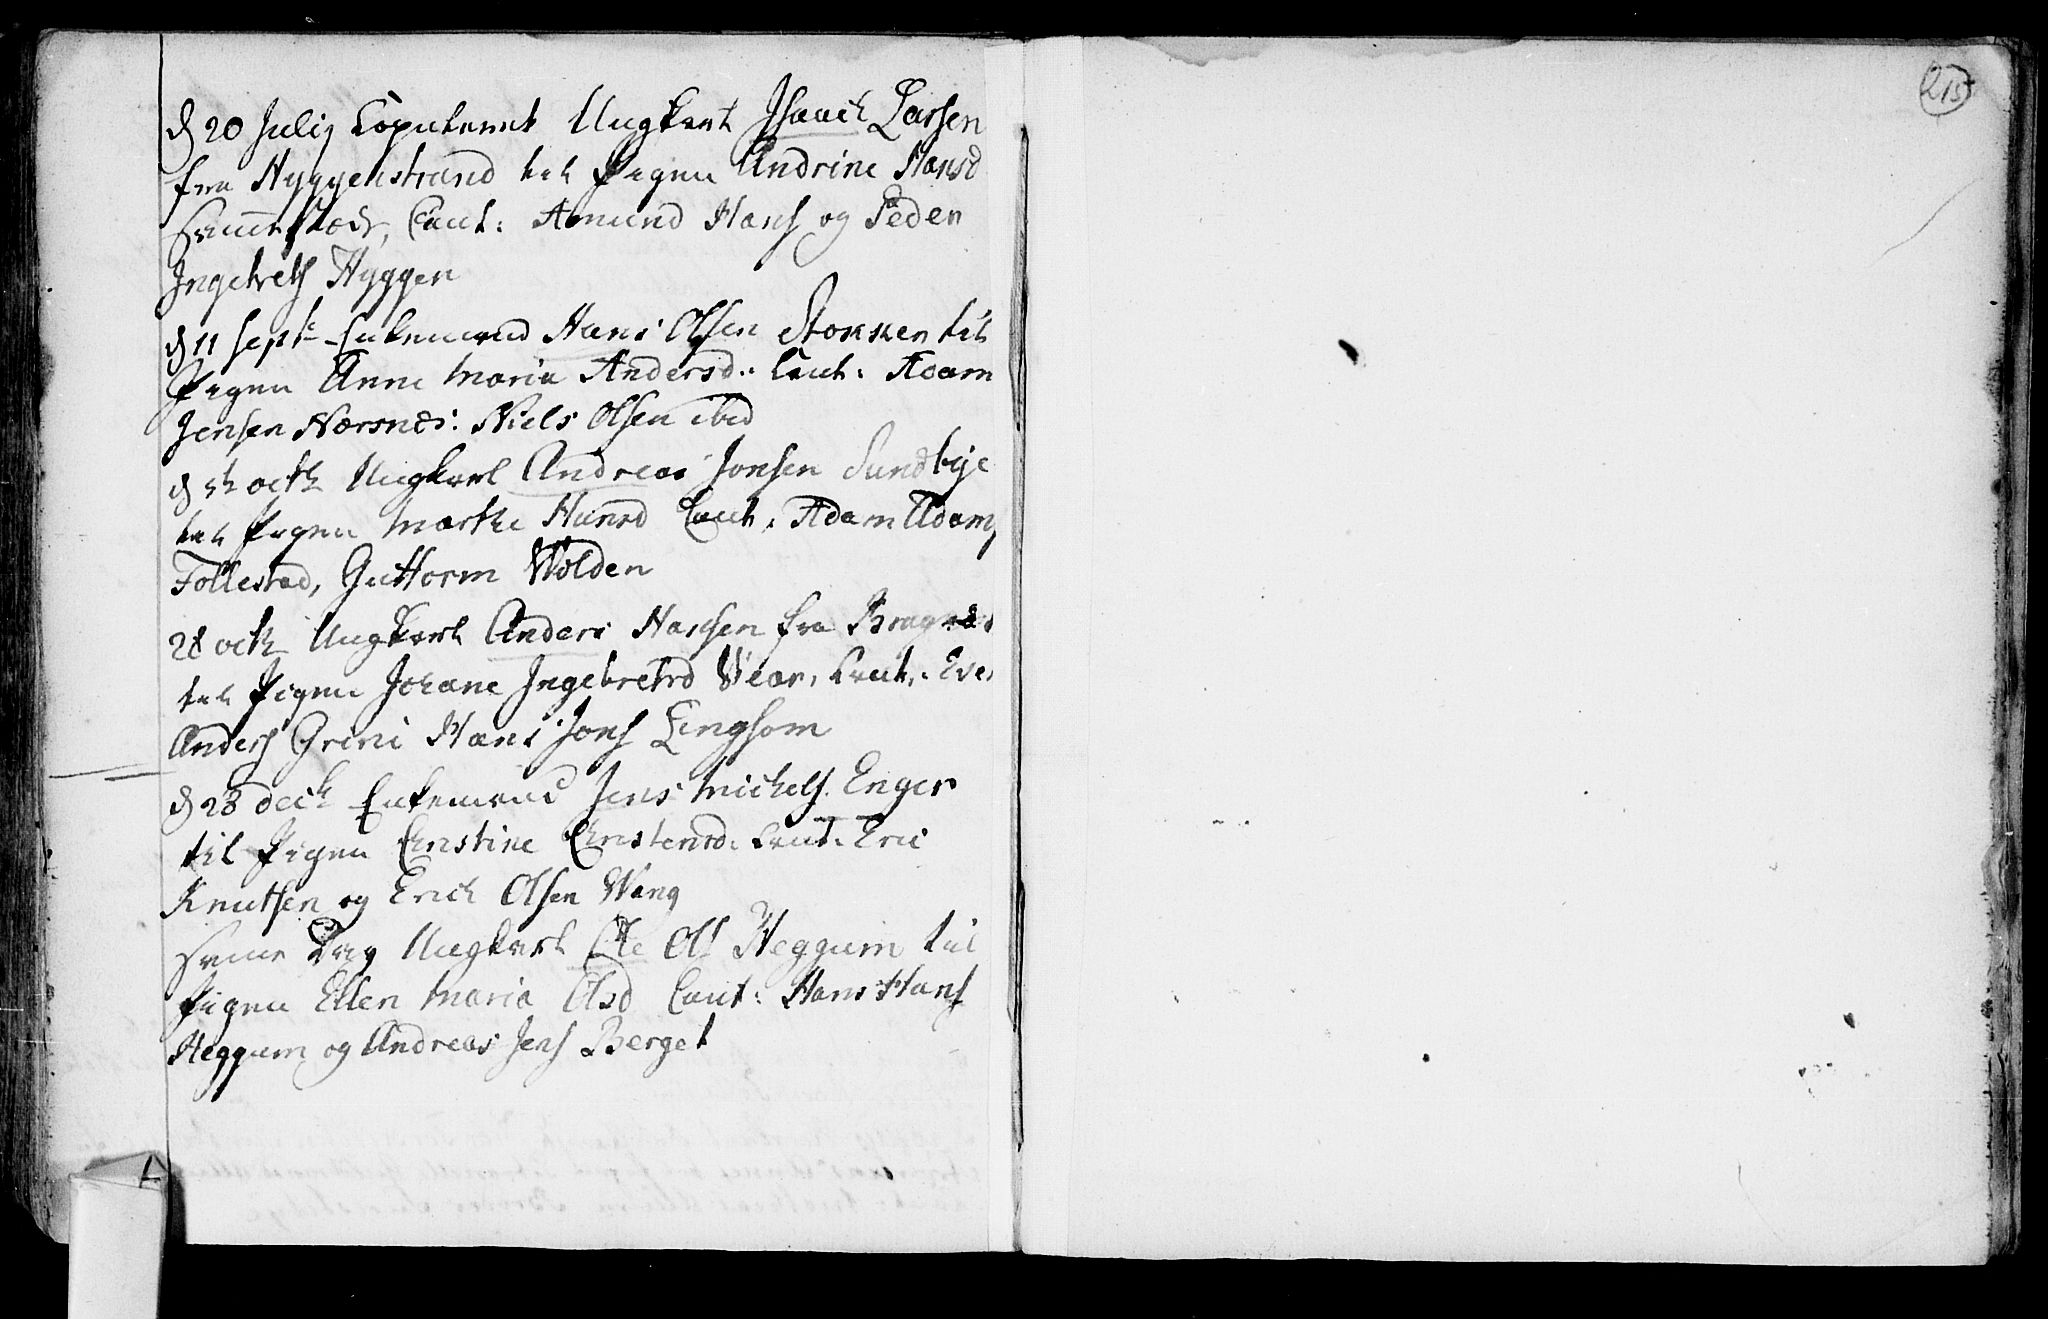 215
d 20 Julij Copuleret Ungkarl Isaach Larsen
fra Hyggenstrand til Pigen Andrine Hansd
sammestæds, Caut: Amund Hans og Peder
Ingebrets Hyggen
d 11 Sept Enkemand Hans Olsen Stokker til
Pigen Anne Maria Andersd: Caut: Adam
Jensen Nærsnes: Niels Olsen ibid
d octb Ungkarl Andreas Jonsen Sundbye
til Pigen Marthe Hansd Caut: Adam Adams
Follestad, Guttorm Wolden
28 octb Ungkarl Anders Hansen fra Bragnæs
til Pigen Johane Ingebretsd Wear, Caut: Eve
Anders Grini Hans Jons Lingsom
d 28 decb Enkemand Jens Michels Enger
til Pigen Christine Christensd: Caut: Eric
Knutsen og Erich Olsen Wang
samme Dag Ungkarl Ole Ols Heggum til
Pigen Ellen Maria Olsd Caut: Hans Hans
Heggum og Andreas Jens Berget